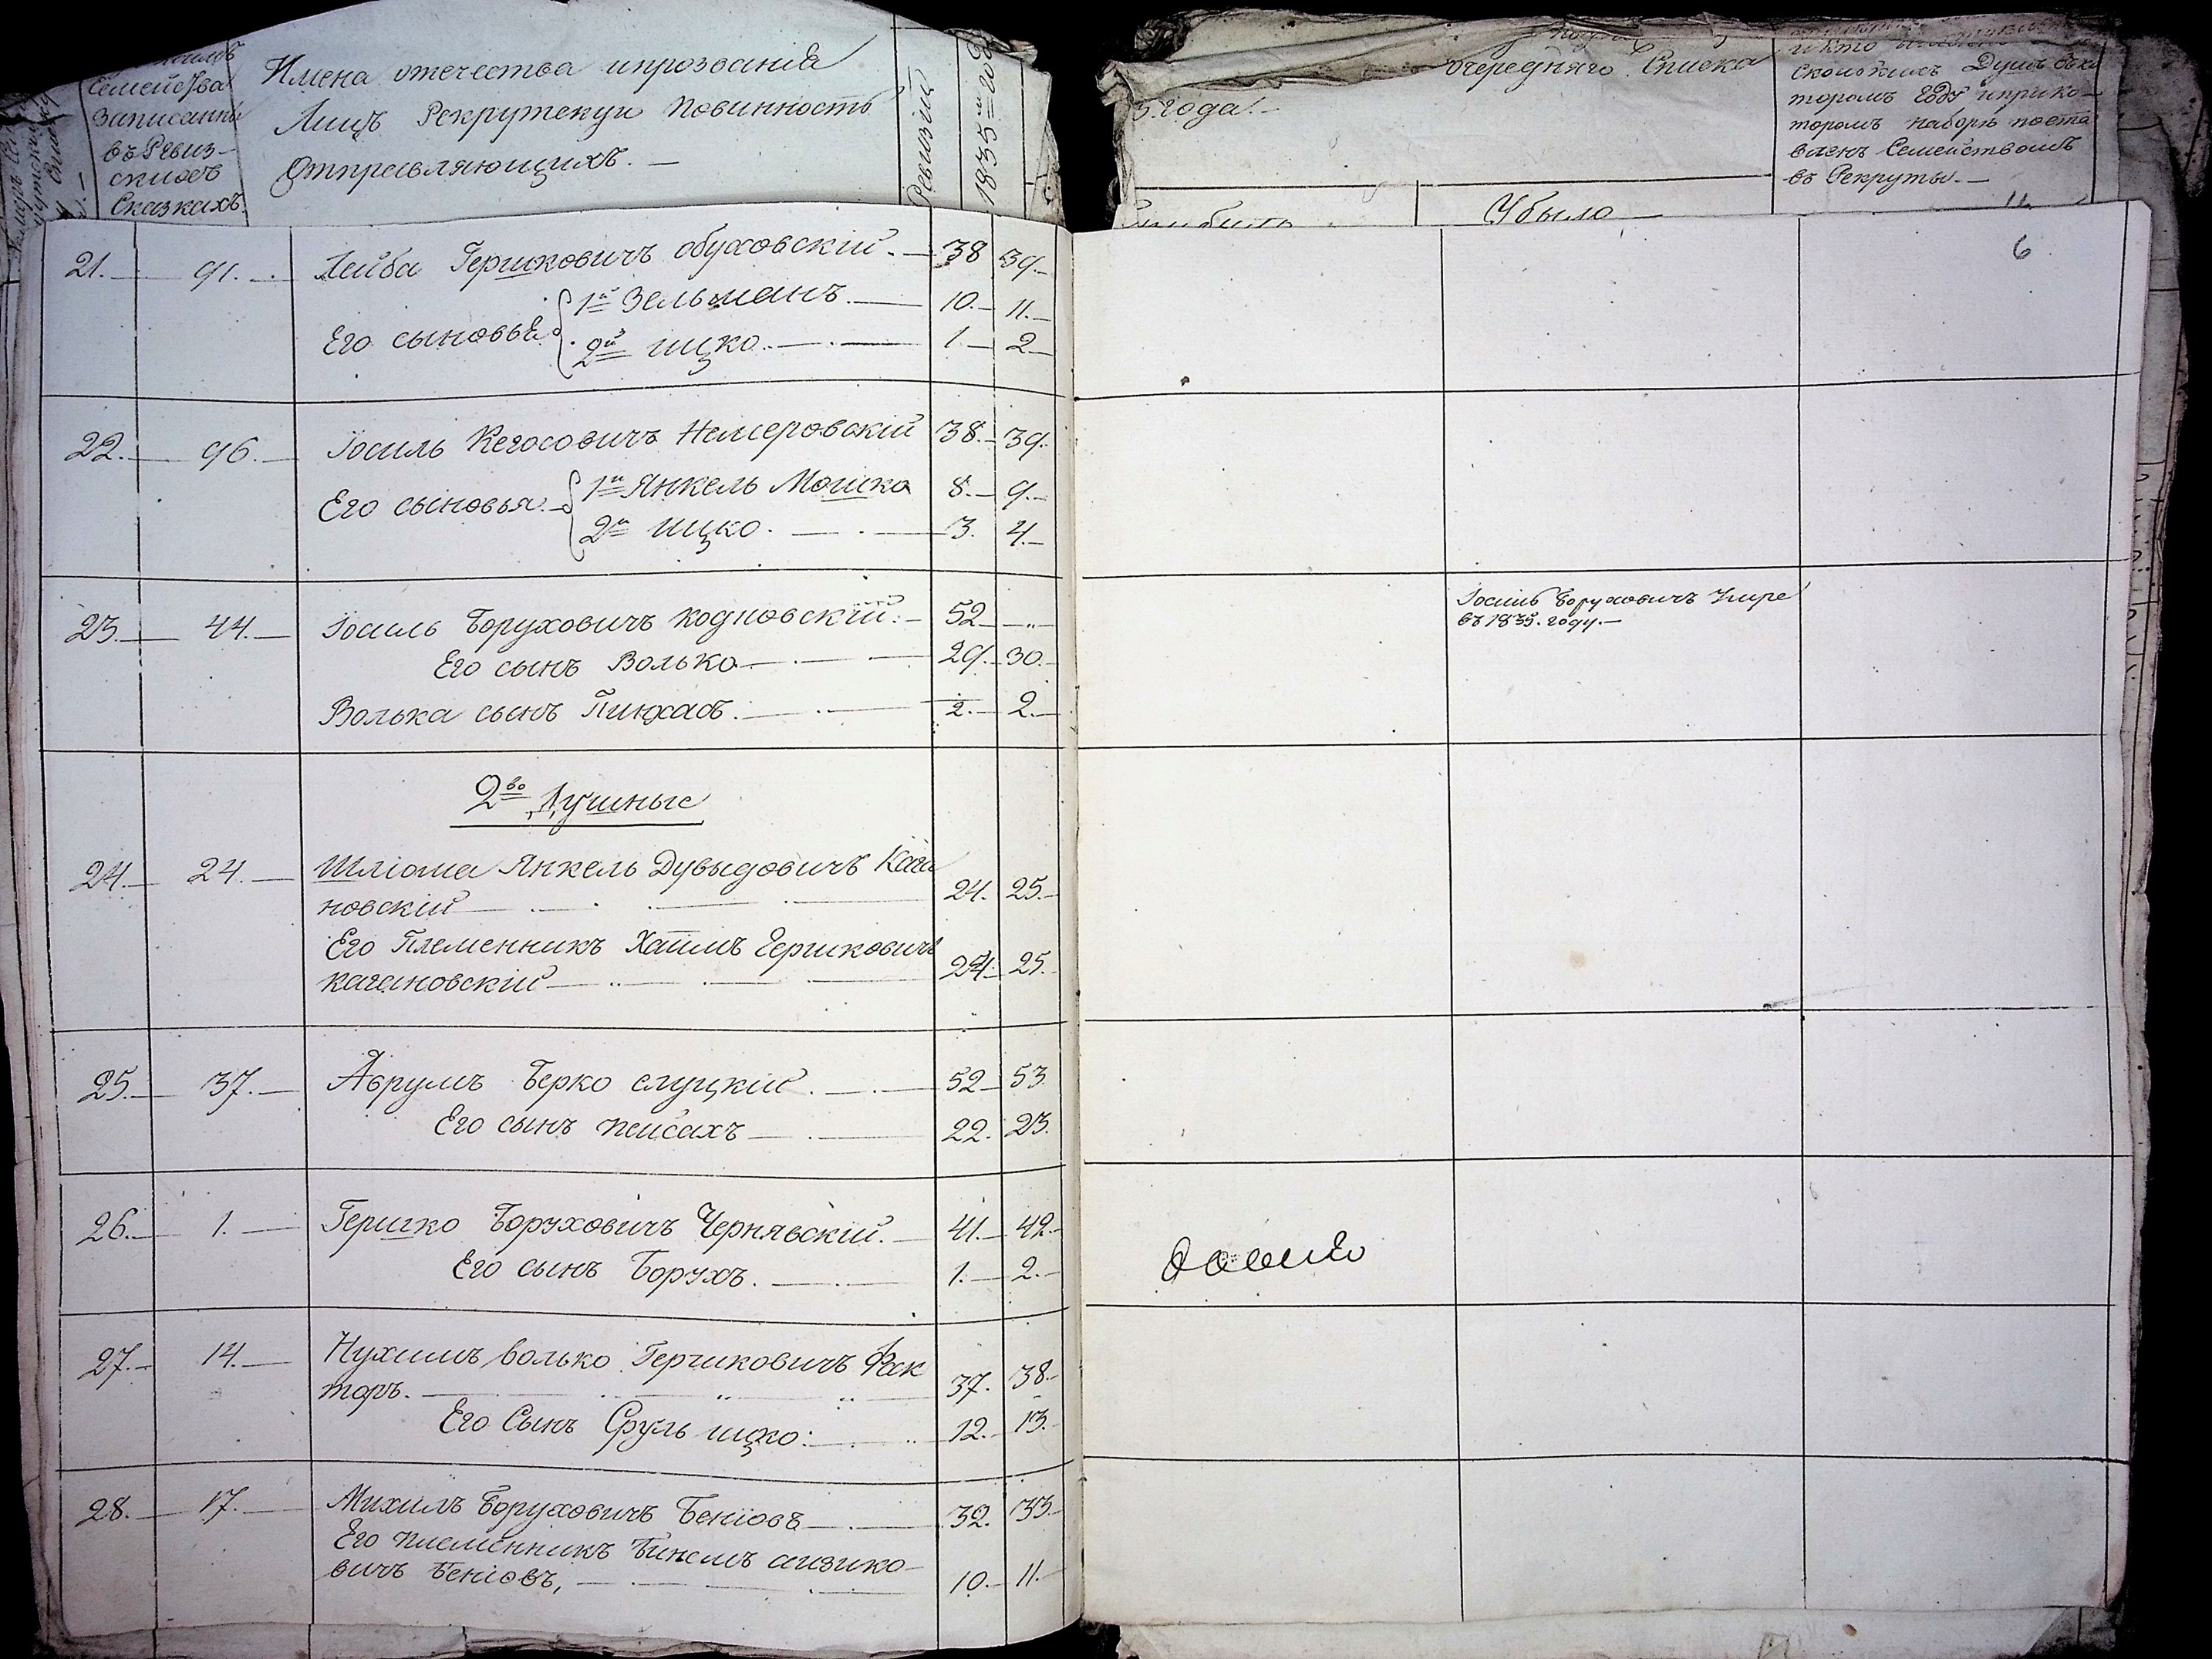 Семейства
Записанны
въ Ревиз-
скихъ
Сказкахъ.
Имена отечества ипрозванія
Лицъ Рекрутскую Повинность
Отправляющихъ. —
Ревизіи
1835го года
5. года. —
очереднаго Списка
сколькихъ Душъ въ ко
торомъ году ипри ко-
торомъ наборѣ поста
вленъ Семействомъ
въ Рекруты. —
Убыло —
6
21. — 91. — Лейба Гершковичъ Обуховскій. — 38 39. —
Его сыновья 1й Зельманъ. — 10. — 11. —
2й ицко. — 1 — 2 —
22. — 96. — Іосиль Немеровскій 38. — 39. —
Его сыновья. 1й Янкель Мошко 8. — 9. —
2й ицко. — 3. 4. —
23. — 44. — Іосиль Боруховичъ Кодновскій. — 52 — „ —
Его сынъ Волько — 29. — 30. —
Волька сынъ Пинхасъ. — 2. — 2. —
Іосиль Боруховичъ Умре
въ 1835. году. —
2во Душные
24. — 24. — Шліома Янкель Дувыдовичъ Кага
новскій — 24. 25. —
Его Племенникъ Хаимъ Гершковичъ
кагановскій — 24. — 25. —
25. — 37. — Аврумъ Берко слуцкій. — 52 — 53
Его сынъ пейсахъ — 22. 23.
26. — 1. — Гершко Боруховичъ Чернявскій. — 41. — 42. —
Его сынъ Борухъ. — 1. — 2. —
27. — 14. — Нухимъ волько Гершковичъ Фак
торъ. — 37. 38. —
Его Сынъ Сруль ицко: — 12. — 13. —
28. — 17. — Михиль Боруховичъ Беніовъ — 32. 33. —
Его племенникъ
вичъ Беніовъ, — 10. — 11. —